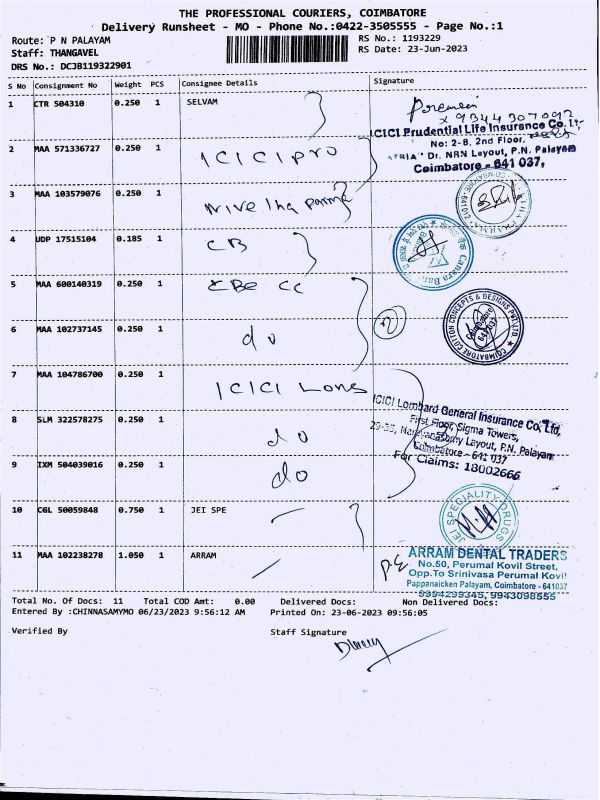 THE PROFESSIONAL COURIERS, COIMBATORE
Delivery Runsheet - MO - Phone No.:0422-3505555 - Page No.:1
Route: P N PALAYAM RS No.: 1193229
Staff: THANGAVEL RS Date: 23-Jun-2023
DRS No.: DCJB119322901
S No Consignment No Weight PCS Consignee Details Signature
1 CTR 504310 0.250 1 SELVAM
9344307092
ICICI Prudential Life Insurance Co.
No: 2-8, 2nd Floor,
2 MAA 571336727 0.250 1 ICICI pro
Dr. NRN Layout, P.N. Palayam
Coimbatore - 641 037,
3 MAA 103579076 0.250 1
4 UDP 17515104 0.185 1 CB
Canara Bank
5 MAA 600140319 0.250 1 CC
COIMBATORE COTTON CONCEPTS & DESIGNS PVT LTD
Coimbatore
641037
6 MAA 102737145 0.250 1 do
2
7 MAA 104786700 0.250 1 ICICI
ICICI Lombard General Insurance Co. Ltd,
First Floor, Sigma Towers,
8 SLM 322578275 0.250 1 do
Layout, P.N. Palayam
Coimbatore - 641 037
For Claims: 18002666
9 IXM 504039016 0.250 1 do
10 CGL 50059848 0.750 1 JEI SPE
JEI SPECIALITY DRUGS
11 MAA 102238278 1.050 1 ARRAM
ARRAM DENTAL TRADERS
No.50, Perumal Kovil Street,
Opp.To Srinivasa Perumal Kovil
Pappanaicken Palayam, Coimbatore - 641037
9994299345, 9943098555
Total No. Of Docs: 11 Total COD Amt: 0.00 Delivered Docs: Non Delivered Docs:
Entered By :CHINNASAMYMO 06/23/2023 9:56:12 AM Printed On: 23-06-2023 09:56:05
Verified By Staff Signature